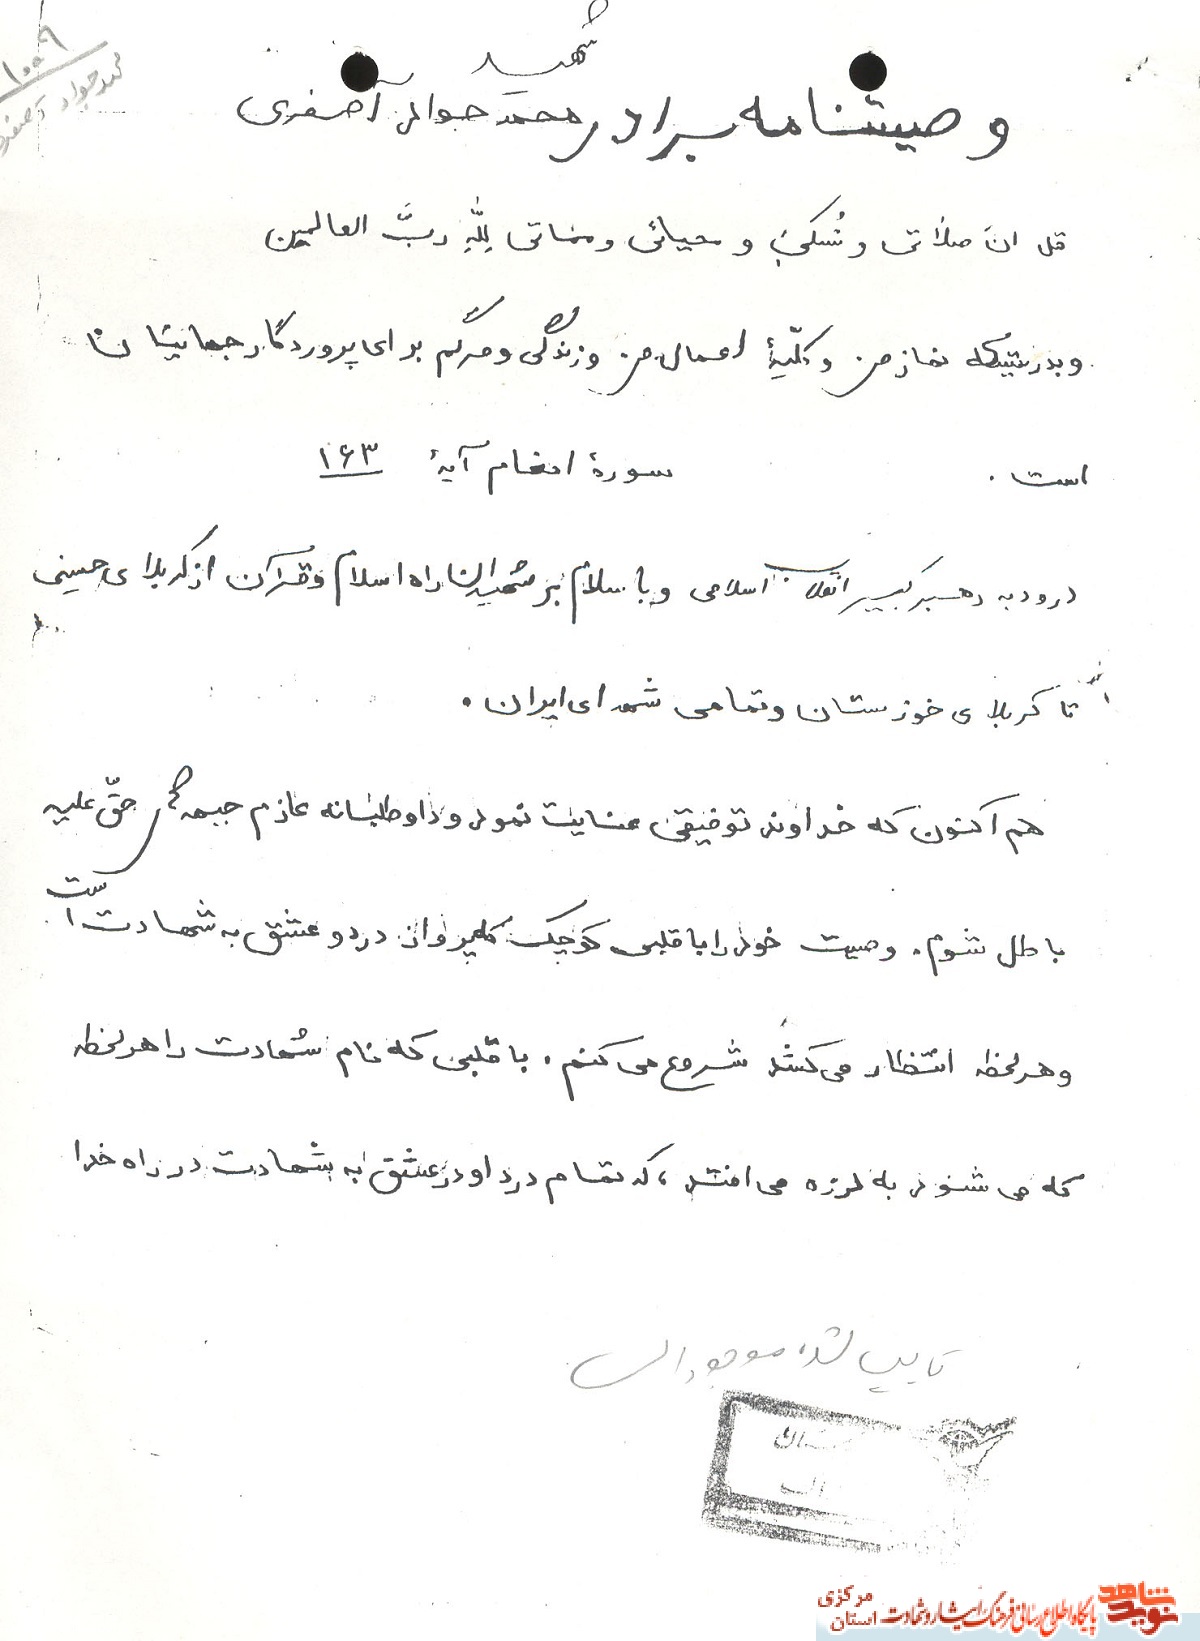 ۱۰۰۹
محمد جواد آصفری
شهید
وصیتنامه برادر محمد جواد آصفری
قل ان صلاتی و نُسکی و محیائی و مماتی لِلّهِ ربَّ العالمین
و بدرستیکه نماز من و کلّیهٔ اعمال من و زندگی و مرگم برای پروردگار جهانیان
است . سورهٔ انعام آیهٔ ۱۶۳
درود به رهبر کبیر انقلاب اسلامی و با سلام بر شهیدان راه اسلام و قرآن از کربلای حسینی
تا کربلای خوزستان و تمامی شهدای ایران .
هم اکنون که خداوند توفیقی عنایت نمود و داوطلبانه عازم جبهه حقّ علیه
باطل شوم . وصیت خود را با قلبی کوچک و از درد و عشق به شهادت است
و هر لحظه انتظار می کشد شروع می کنم . با قلبی که نام شهادت را هر لحظه
که می شنود به لرزه می افتد ، که تمام درد او در عشق به شهادت در راه خدا
تایپ شده موجود است
نوید شاهد
پایگاه اطلاع رسانی فرهنگ ایثار و شهادت استان مرکزی